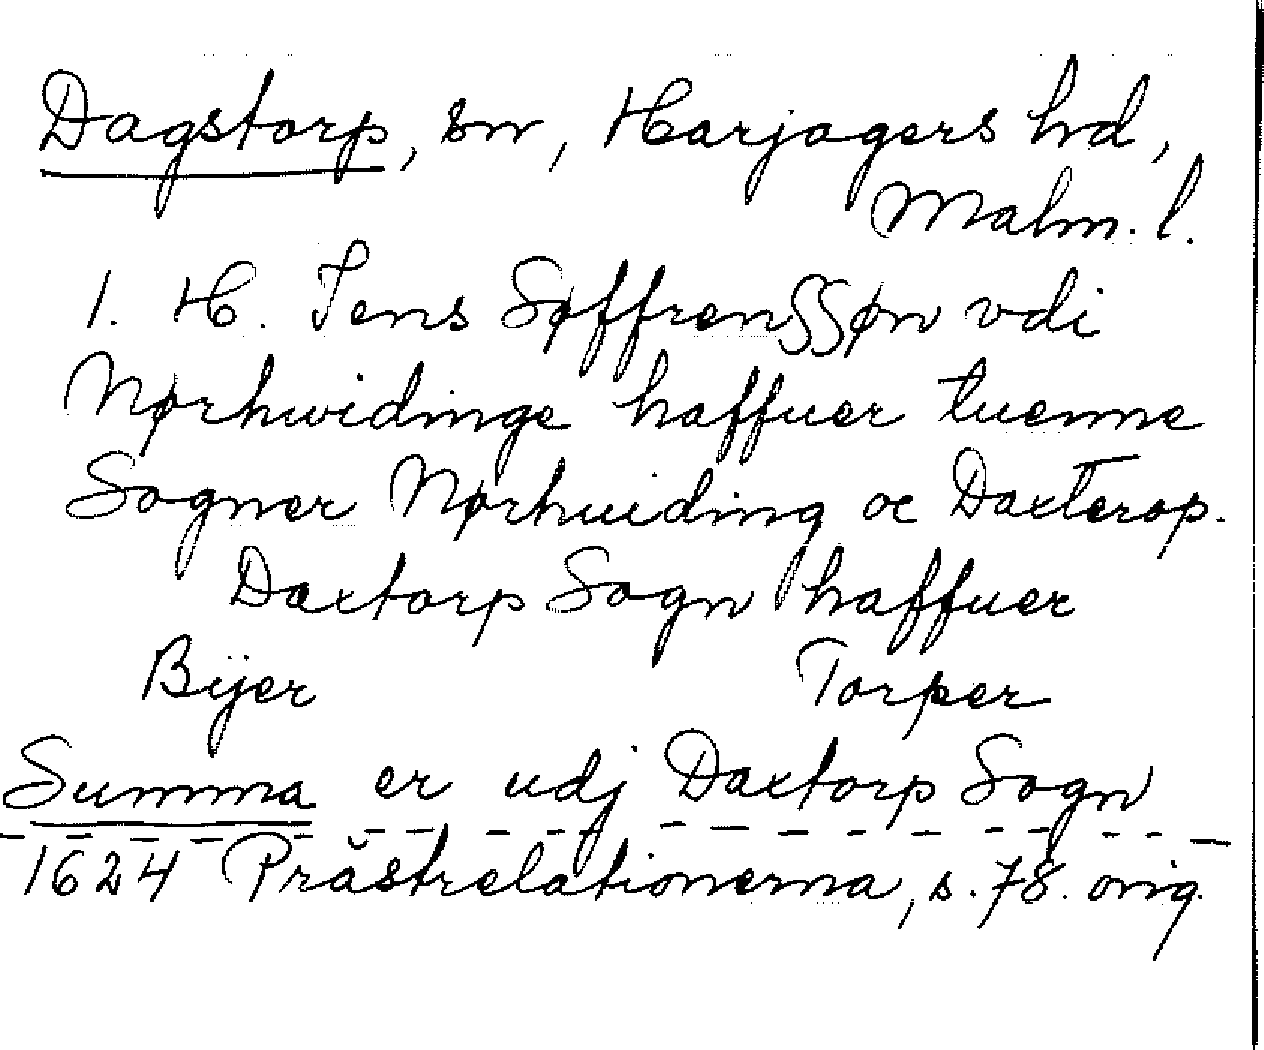 Dagstorp, sn, Harjagers hd,
Malm. l.
1. H. Jens Søffrenssøn vdi
Nørhwidinge haffuer tuenne
Sogner Nørhuiding oc Daxterop.
Daxtorp Sogn haffuer
Bÿer Torper
Summa er udj Daxtorp Sogn
1624 Prästrelationerna, s. 78. orig.